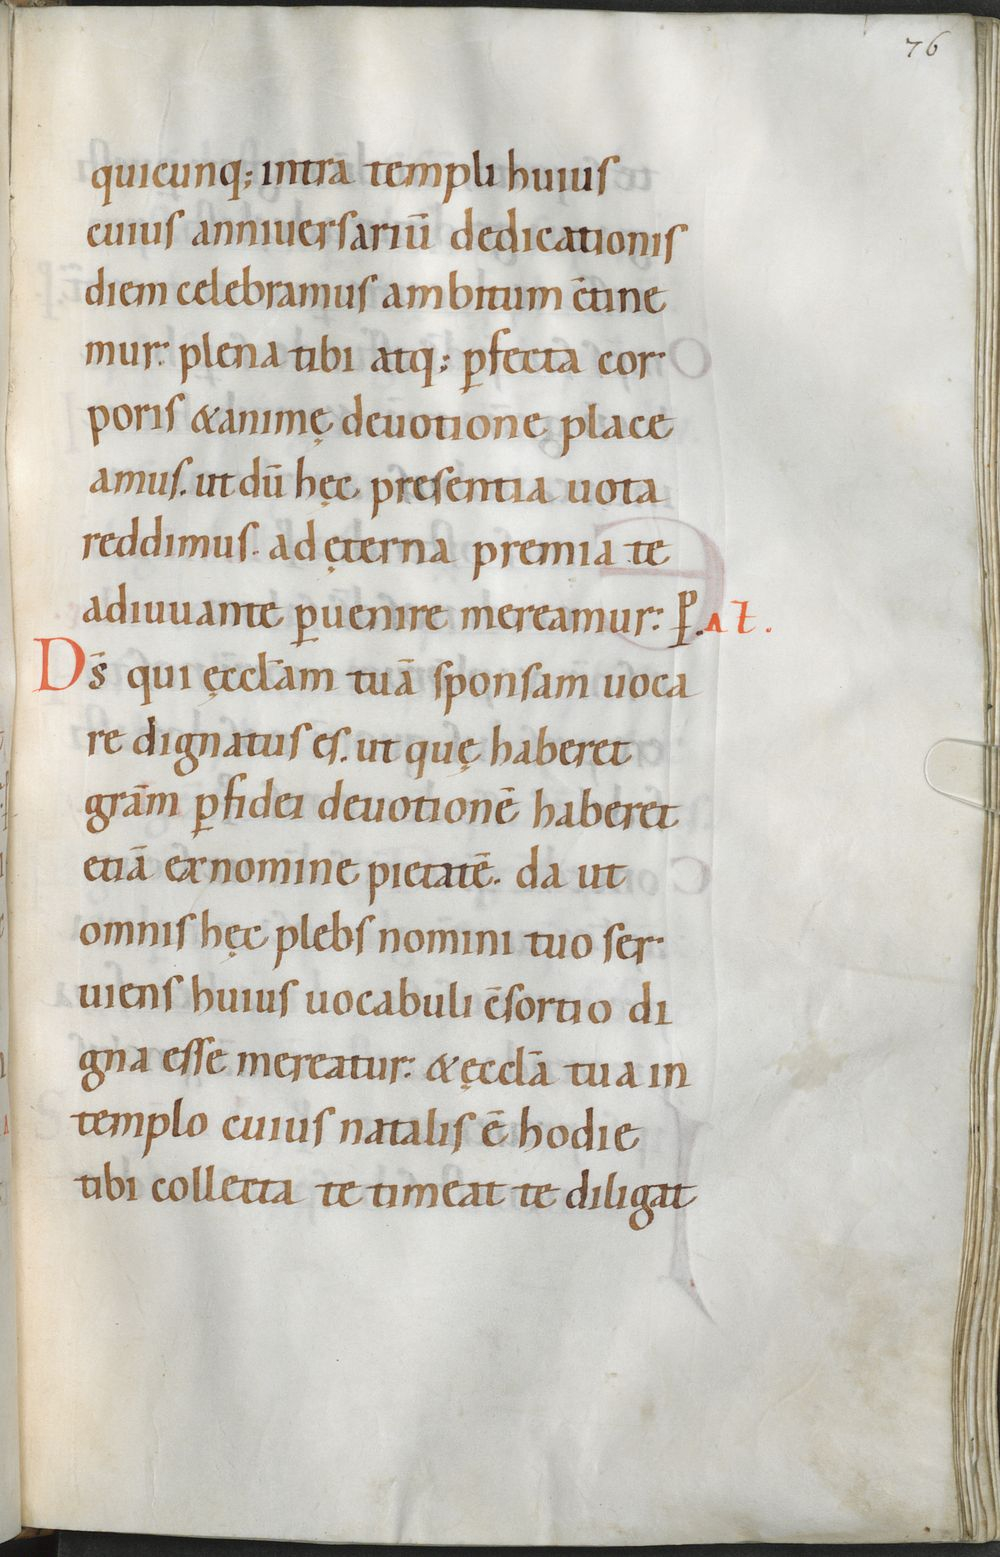 76
quicunq; intra templi huius
cuius anniuersariū dedicationis
diem celebramus ambitum c̄tine
mur: plena tibi atq; ꝑfecta cor
poris & animę deuotione place
amus. ut dū hęc presentia uota
reddimus. ad ęterna premia te
adiuuante ꝑuenire mereamur: P. AL.
Ds̄ qui ęccl̄am tuā sponsam uoca
re dignatus es. ut quę haberet
grām ꝑ fidei deuotionē haberet
etiā ex nomine pietatē. da ut
omnis hęc plebs nomini tuo ser
uiens huius uocabuli c̄sortio di
gna esse mereatur: & ęccl̄a tua in
templo cuius natalis ē hodie
tibi collecta te timeat te diligat